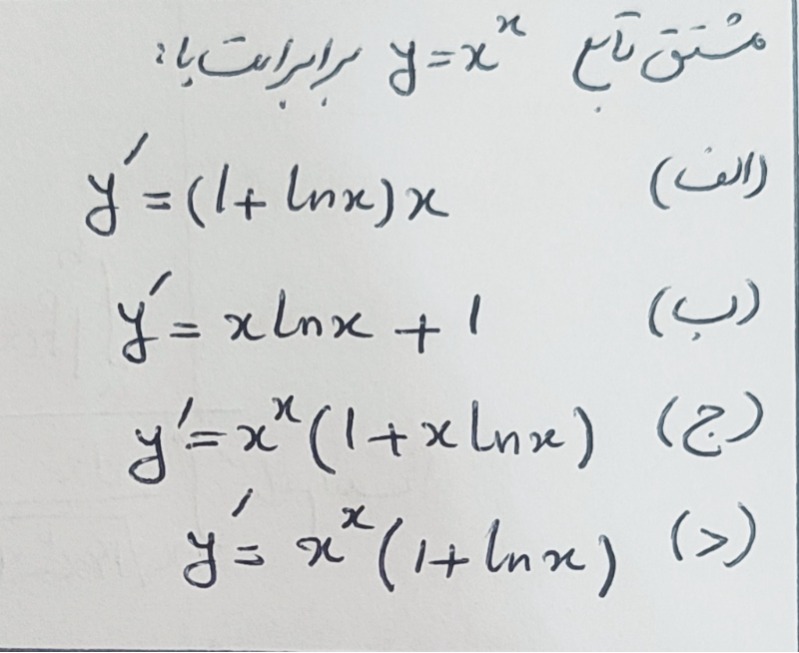 مشتق تابع y=x^x برابر است با:
الف) y′=(1+lnx)x
ب) y′=xlnx+1
ج) y′=x^x(1+xlnx)
د) y′=x^x(1+lnx)